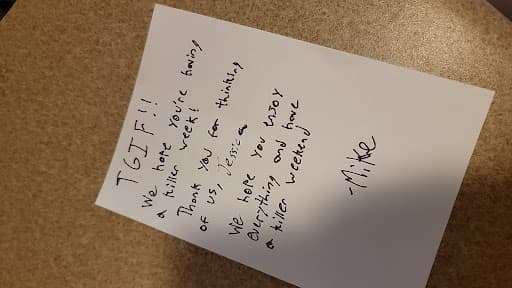 TGIF!!
We hope you're having
a killer week!
Thank you for thinking
of us, Jessica
We hope you enjoy
everything and have
a killer weekend
-Mike